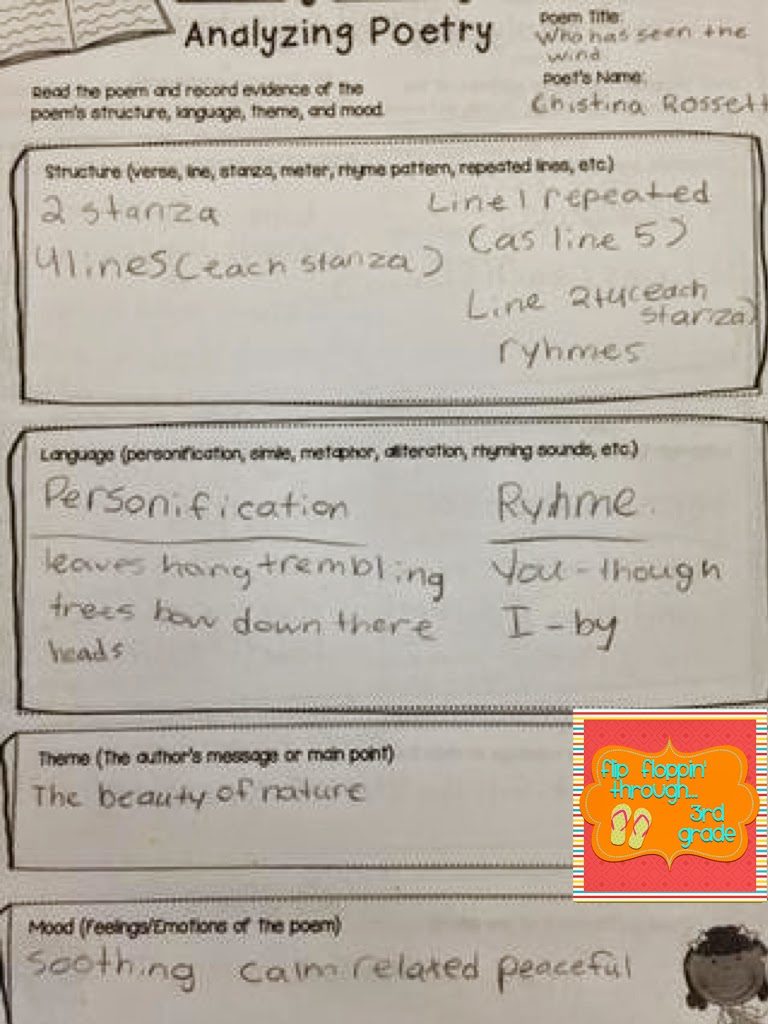 Analyzing Poetry
Poem Title:
Who has seen the
wind
Poet's Name:
Christina Rossett
Read the poem and record evidence of the
poem's structure, language, theme, and mood.
Structure (verse, line, stanza, meter, rhyme pattern, repeated lines, etc.)
2 stanza
4 lines (each stanza)
Line 1 repeated
(as line 5)
Line 2+4 (each
stanza)
ryhmes
Language (personification, simile, metaphor, alliteration, rhyming sounds, etc.)
Personification
leaves hang trembling
trees bow down there
heads
Ryhme
You - though
I - by
Theme (The author's message or main point)
The beauty of nature
flip floppin'
through...
3rd
grade
Mood (Feelings/Emotions of the poem)
Soothing calm related peaceful